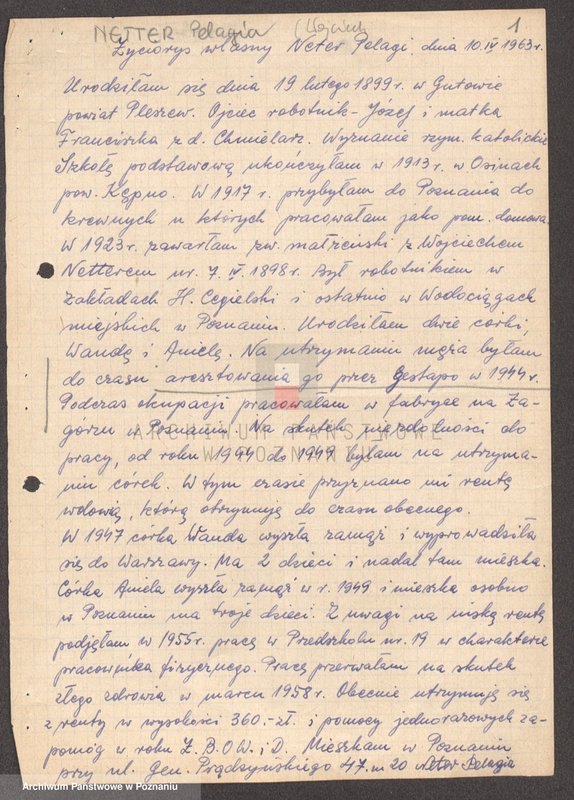 NETTER Pelagia (Wojciech) 1
Życiorys własny Neter Pelagi dnia 10.IV 1963r.
Urodziłam się dnia 19 lutego 1899 r. w Gutowie
powiat Pleszew. Ojciec robotnik - Józef i matka
Franciszka z d. Chmielarz. Wyznanie rzym. katolickie
Szkołę podstawową ukończyłam w 1913 r. w Osinach
pow. Kępno. W 1917 r. przybyłam do Poznania do
krewnych u których pracowałam jako pom. domowa.
W 1923 r. zawarłam zw. małżeński z Wojciechem
Netterem ur. 7. IV. 1898 r. Był robotnikiem w
zakładach H. Cegielski i ostatnio w Wodociągach
miejskich w Poznaniu. Urodziłam dwie córki,
Wandę i Anielę. Na utrzymaniu męża byłam
do czasu aresztowania go przez Gestapo w 1944 r.
Podczas okupacji pracowałam w fabryce na Za-
górzu w Poznaniu. Na skutek niezdolności do
ARCHIWUM PAŃSTWOWE
W POZNANIU
pracy, od roku 1944 do 1949 byłam na utrzyma-
niu córek. W tym czasie przyznano mi rentę
wdowią, którą otrzymuję do czasu obecnego.
W 1947 córka Wanda wyszła zamąż i wyprowadziła
się do Warszawy. Ma 2 dzieci i nadal tam mieszka.
Córka Aniela wyszła zamąż w r. 1949 i mieszka osobno
w Poznaniu ma troje dzieci. Z uwagi na niską rentę
podjęłam w 1955 r. pracę w Przedszkolu nr. 19 w charakterze
pracownika fizycznego. Pracę przerwałam na skutek
złego zdrowia w marcu 1958 r. Obecnie utrzymuję się
z renty w wysokości 360.- zł. i pomocy jednorazowych za-
pomóg w roku Z.B.O.W. i D. Mieszkam w Poznaniu
przy ul. Gen. Prądzyńskiego 47. m 20 Neter Pelagia
Archiwum Państwowe w Poznaniu